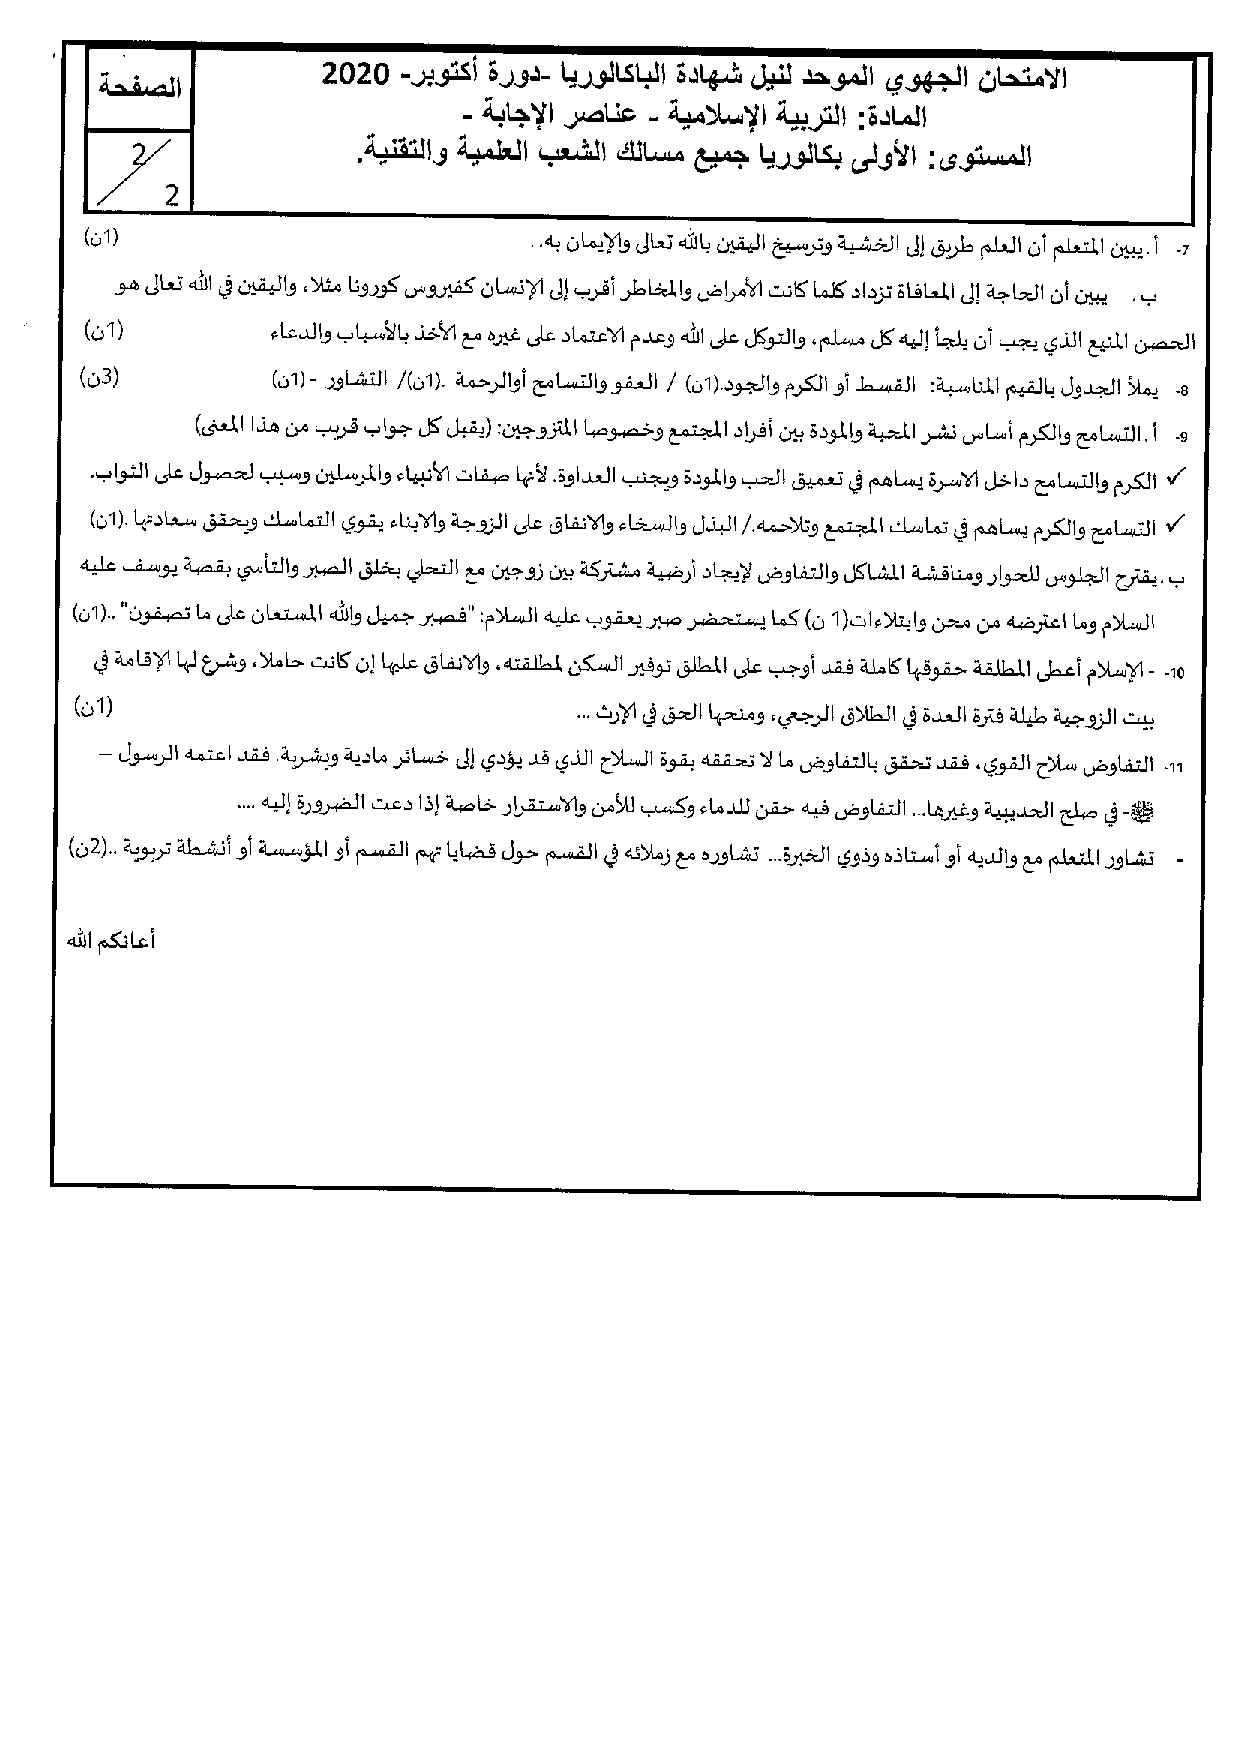 الامتحان الجهوي الموحد لنيل شهادة الباكالوريا -دورة أكتوبر- 2020
المادة: التربية الإسلامية - عناصر الإجابة -
المستوى: الأولى بكالوريا جميع مسالك الشعب العلمية والتقنية.
الصفحة
2
2
7- أ. يبين المتعلم أن العلم طريق إلى الخشية وترسيخ اليقين بالله تعالى والإيمان به.. (1ن)
ب. يبين أن الحاجة إلى المعافاة تزداد كلما كانت الأمراض والمخاطر أقرب إلى الإنسان كفيروس كورونا مثلا، واليقين في الله تعالى هو
الحصن المنيع الذي يجب أن يلجأ إليه كل مسلم، والتوكل على الله وعدم الاعتماد على غيره مع الأخذ بالأسباب والدعاء (1ن)
8- يملأ الجدول بالقيم المناسبة: القسط أو الكرم والجود.(1ن) / العفو والتسامح أوالرحمة .(1ن)/ التشاور -(1ن) (3ن)
9- أ. التسامح والكرم أساس نشر المحبة والمودة بين أفراد المجتمع وخصوصا المتزوجين: (يقبل كل جواب قريب من هذا المعنى)
✓ الكرم والتسامح داخل الاسرة يساهم في تعميق الحب والمودة ويجنب العداوة. لأنها صفات الأنبياء والمرسلين وسبب لحصول على الثواب.
✓ التسامح والكرم يساهم في تماسك المجتمع وتلاحمه./ البذل والسخاء والانفاق على الزوجة والابناء يقوي التماسك ويحقق سعادتها .(1ن)
ب. يقترح الجلوس للحوار ومناقشة المشاكل والتفاوض لإيجاد أرضية مشتركة بين زوجين مع التحلي بخلق الصبر والتأسي بقصة يوسف عليه
السلام وما اعترضه من محن وابتلاءات(1 ن) كما يستحضر صبر يعقوب عليه السلام: "فصبر جميل والله المستعان على ما تصفون"..(1ن)
10- - الإسلام أعطى المطلقة حقوقها كاملة فقد أوجب على المطلق توفير السكن لمطلقته، والانفاق عليها إن كانت حاملا، وشرع لها الإقامة في
بيت الزوجية طيلة فترة العدة في الطلاق الرجعي، ومنحها الحق في الإرث ... (1ن)
11- التفاوض سلاح القوي، فقد تحقق بالتفاوض ما لا تحققه بقوة السلاح الذي قد يؤدي إلى خسائر مادية وبشرية. فقد اعتمه الرسول –
ﷺ- في صلح الحديبية وغيرها... التفاوض فيه حقن للدماء وكسب للأمن والاستقرار خاصة إذا دعت الضرورة إليه ....
- تشاور المتعلم مع والديه أو أستاذه وذوي الخبرة... تشاوره مع زملائه في القسم حول قضايا تهم القسم أو المؤسسة أو أنشطة تربوية ..(2ن)
أعانكم الله